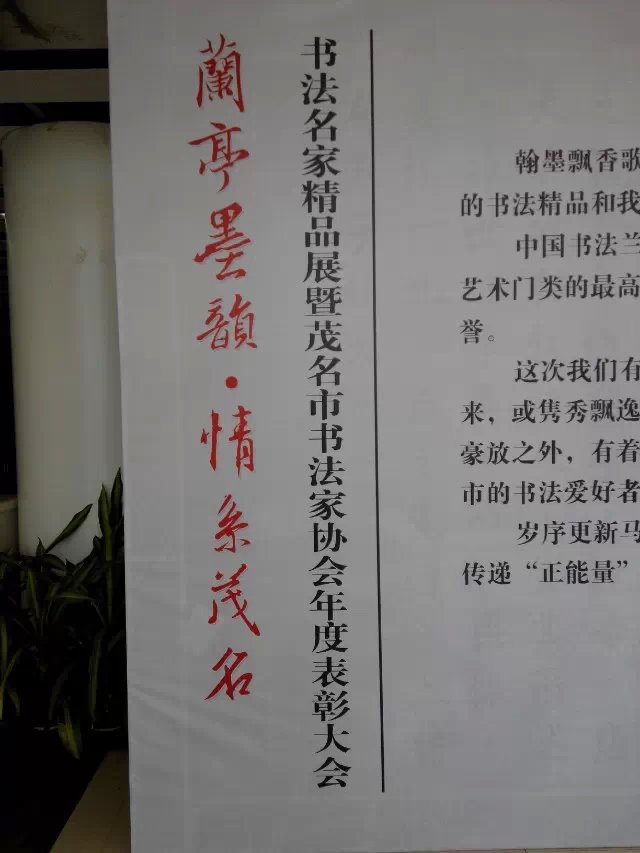 蘭亭墨韻·情系茂名
书法名家精品展暨茂名市书法家协会年度表彰大会
翰墨飘香歌
的书法精品和我
中国书法兰
艺术门类的最高
誉。
这次我们有
来，或隽秀飘逸
豪放之外，有着
市的书法爱好者
岁序更新马
传递“正能量”